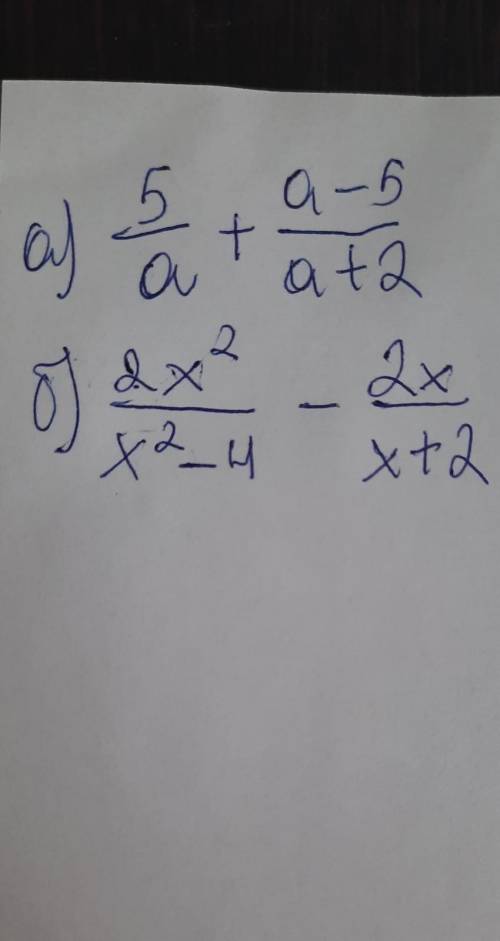 а) 5/a + a-5/a+2
б) 2x²/x²-4 - 2x/x+2